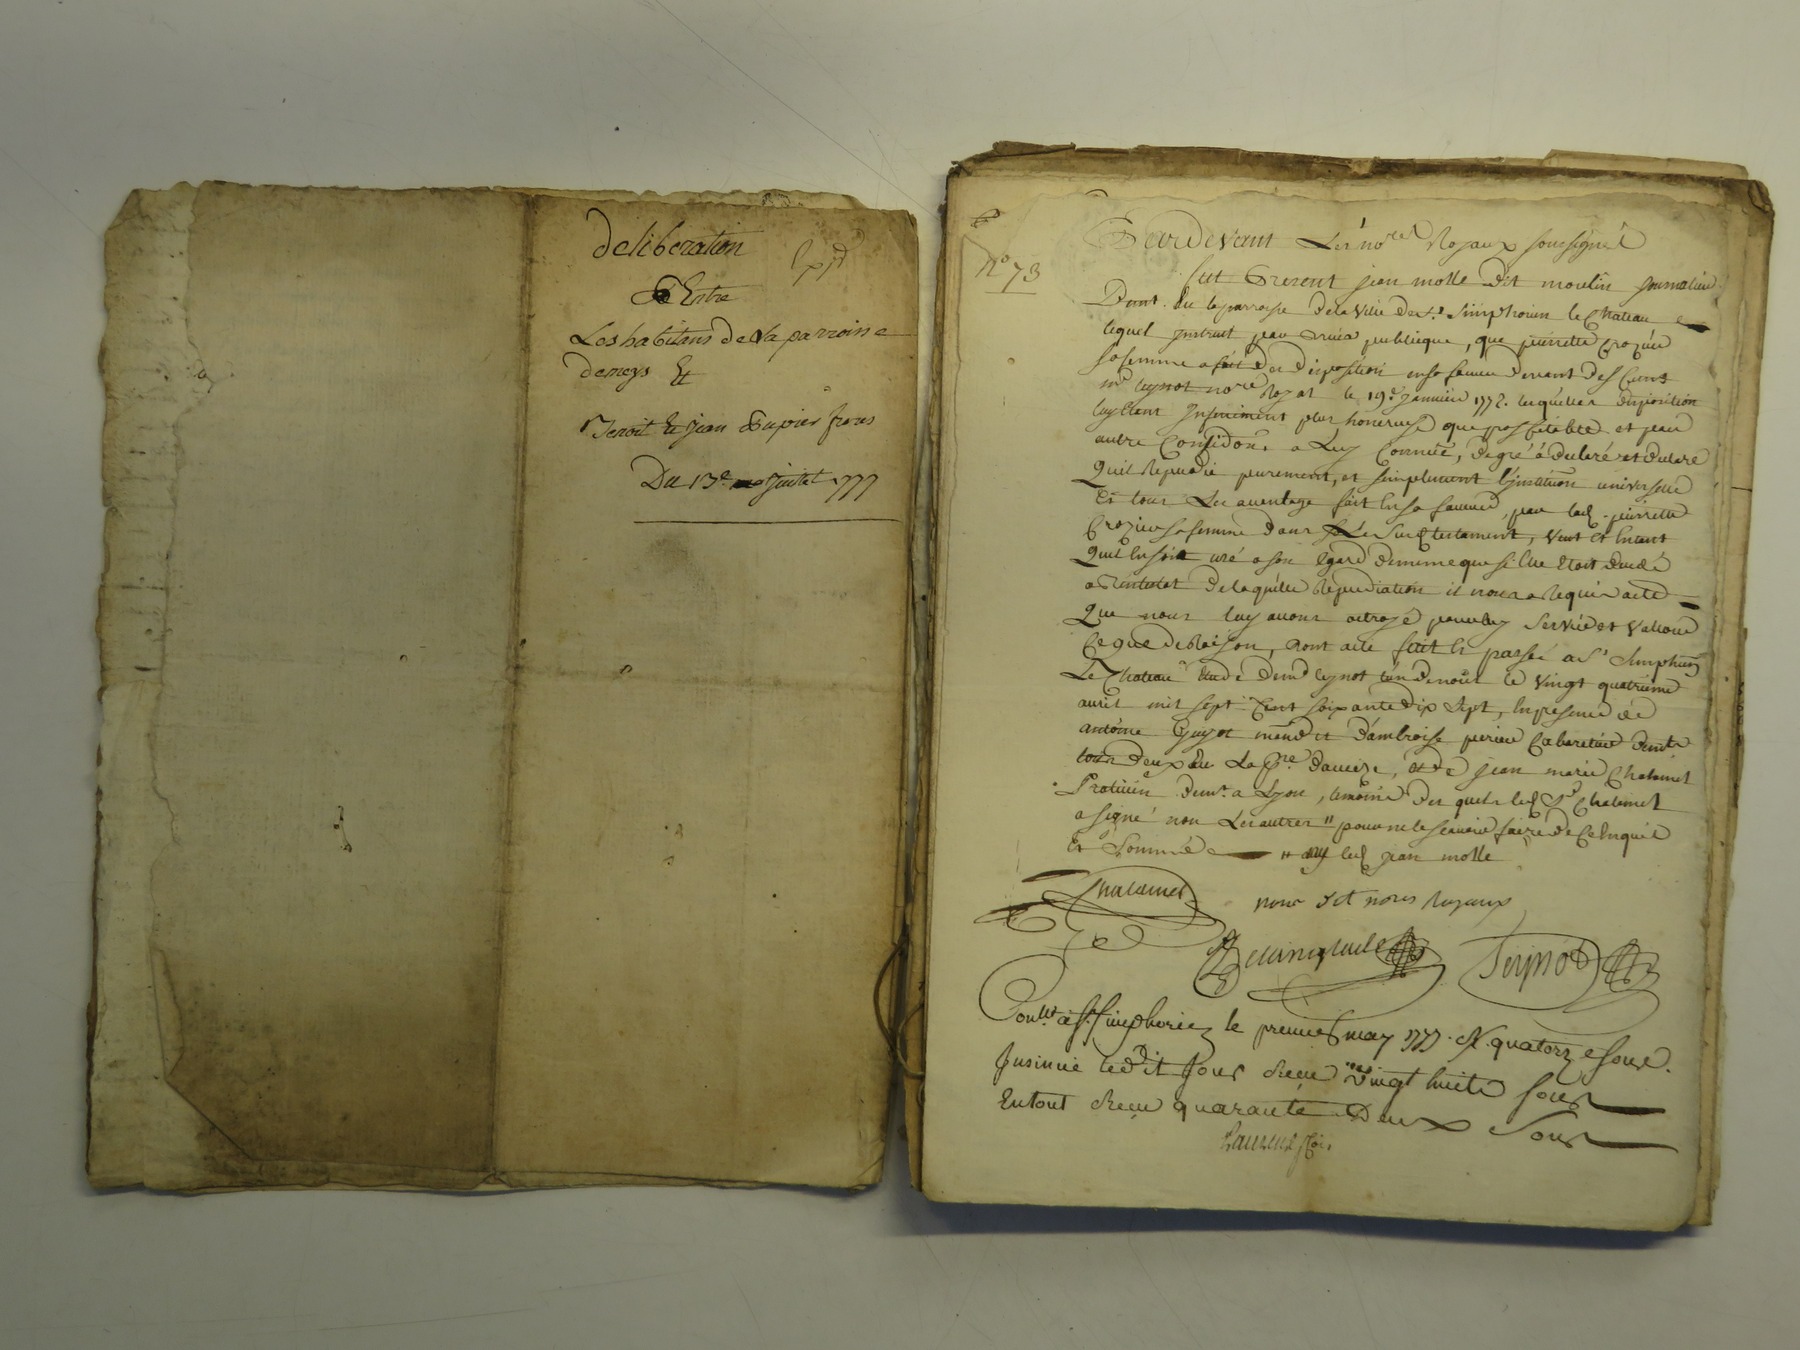 deliberation
Expd
d'Entre
Les habitans de La parroisse
de meys Et
Benoit Et jean Dupuier freres
Du 13e juillet 1777
no 73
Pardevant Les nores Royaux soussignés
fut Present jean molle dit moulin journalier
Demt. en la parroisse de la Ville de st. Simphorien le Chateau
lequel instruit par voix publique, que pierrette Crozier
sa femme a fait des disposition en sa faveur devant
me. Leynot nore Royal le 19e. janvier 1772. lesquelles disposition
luy étant infiniment plus honereuse que profitable et par
autre Considõns a Luy Connuës, de gré à declaré et declare
Quil Repudie purement, et simplement l'institũon universelle
Et tous Les avantage fait En sa faveur, par lad. pierrette
Crozier sa femme dans Le susd testament, Veut Et Entent
Quil En soit usé a son Egard de meme que si Elle Etoit decedé
de laquelle Repudiation il nous a Requis acte
Que nous luy avons octroyé pour luy Servir et Valloir
Ce que de Raison, dont acte fait Et passé a St Simphorien
Le Chateau Etude dud leynot l'un de nous le Vingt quatrieme
avril mil sept Cent soixante dix sept, En presence de
antoine Guyot mẽnd et d'ambroise perier Cabaretier demts
tous deux En La psse. d'aveize, et de jean marie Chatainet
Praticien demt. a Lyon, temoins des quels led Sr Chatainet
a signé non Les autres " pour ne le scavoir faire de Ce Enquis
Et Sommé " ny led jean molle
Chatainet nous dit nores Royaux
Leynot
Conllé. à St. Simphorien le premier may 1777. R. quatorze sous.
Insinué ledit Jour Reçu Vingt huit sous
En tout Reçu quarante Deux Sous